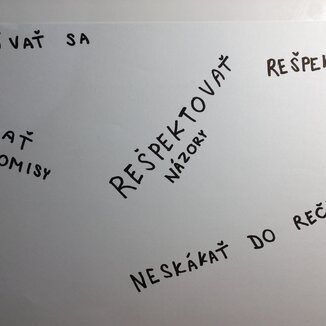 VAŤ SA
REŠPEK
AŤ
OMISY
REŠPEKTOVAŤ
NÁZORY
NESKÁKAŤ DO REČ